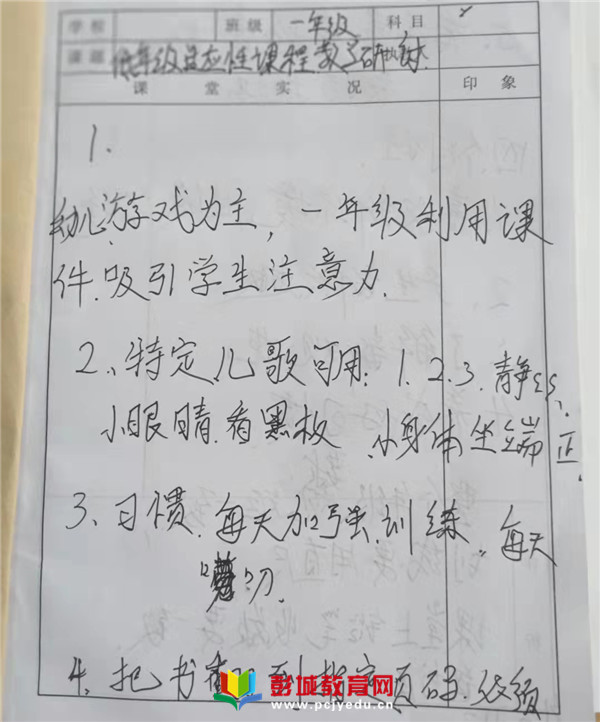 学校 班级 一年级 科目
课题 低年级适应性课程教学研讨
课堂实况 印象
1.
幼儿游戏为主，一年级利用课
件.吸引学生注意力.
2、特定儿歌可用：1.2.3.静
小眼睛.看黑板 小身体坐端正.
3、习惯.每天加强训练，每天
4、把书 到指定页码.必须
彭城教育网
www.pcjyedu.cn